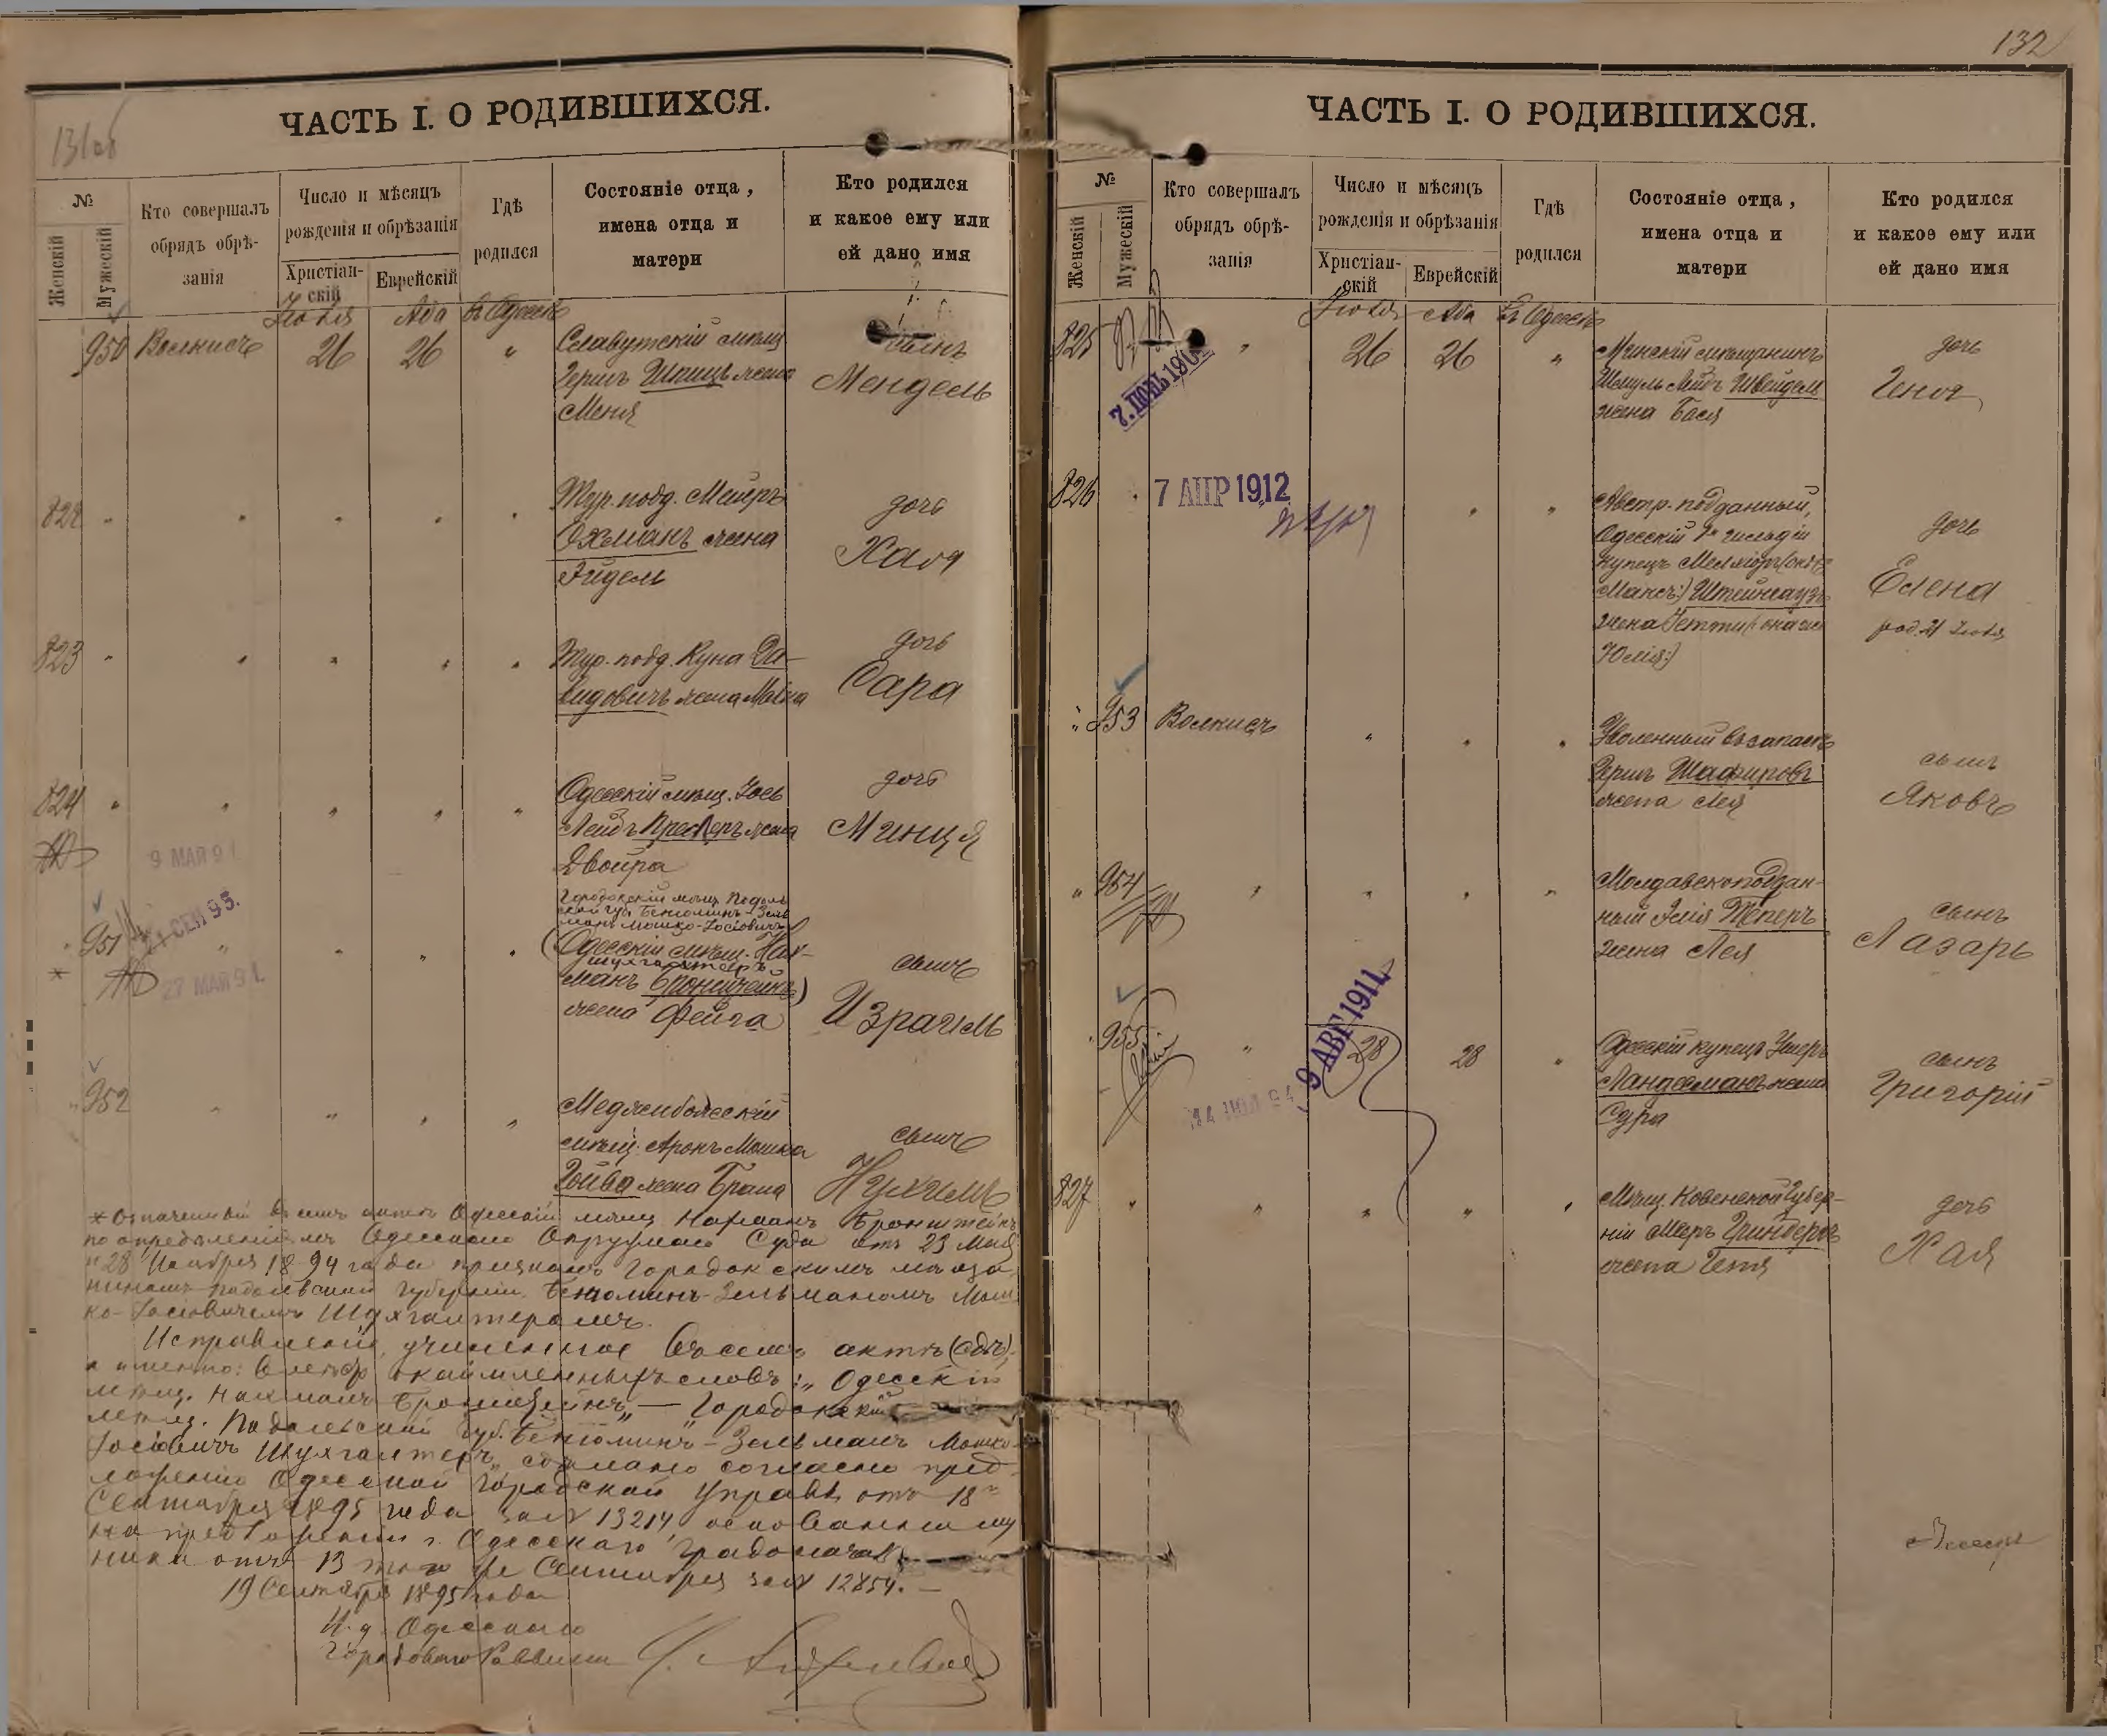 131об
ЧАСТЬ I. О РОДИВШИХСЯ.
№
Женскій
Мужескій
Кто совершалъ
обрядъ обрѣ-
занія
Число и мѣсяцъ
рожденія и обрѣзанія
Христіан-
скій
Еврейскій
Гдѣ
родился
Состояніе отца,
имена отца и
матери
Кто родился
и какое ему или
ей дано имя
Іюля Ава въ Одессѣ
950 Волкисъ 26 26 " Славутскій мѣщ сынъ
Гершъ Шпицъ жена Мендель
Меня
822 " " " " " Тур. подд. Мейеръ дочь
Охманъ жена Хая
Эйдель
823 " " " " " Тур. подд. Куна Да- дочь
видовичъ жена Сара
824 " " " " " Одесскій мѣщ. Іось дочь
Лейбъ жена Минця
Двойра
9 МАЙ 9
Городокскій мѣщ. Подоль
ской губ. Беніоминъ-Зель
манъ Мошко-Іосіовичъ
951 " " " " (Одесскій мѣщ. Нах-
Шухгалтеръ сынъ
манъ Бронштейнъ)
жена Фейга Израиль
* 21 СЕН 95.
27 МАЙ 91.
952 " " " " Меджибожескій
мѣщ. Аронъ Мошка сынъ
Гойва жена Брана Нухимъ
* Означенный въ семъ актѣ Одесскій мѣщ Нахманъ Бронштейнъ
по опредѣленіямъ Одесскаго Окружнаго Суда отъ 23 Мая
и 28 Ноября 1894 года признанъ Городокскимъ мѣща
ниномъ Подольской губерніи Беніоминъ-Зельманомъ Мош
ко-Іосіовичемъ Шухгалтеромъ.
Исправленіе, учиненное въ семъ актѣ (951),
а именно: вмѣсто окаймленныхъ словъ: „Одесскій
мѣщ. Нахманъ Бронштейнъ" — „Городокскій
мѣщ. Подольской губ. Беніоминъ-Зельманъ Мошко-
Іосіовичъ Шухгалтеръ" сдѣлано согласно пред-
ложенію Одесской Городской Управы отъ 18
Сентября 1895 года за № 13214, основанному
на предложеніи г. Одесскаго Градоначаль
ника отъ 13 того же Сентября за № 12854. —
19 Сентября 1895 года
И. д. Одесскаго
Городового Раввина
132
ЧАСТЬ I. О РОДИВШИХСЯ.
№
Женскій
Мужескій
Кто совершалъ
обрядъ обрѣ-
занія
Число и мѣсяцъ
рожденія и обрѣзанія
Христіан-
скій
Еврейскій
Гдѣ
родился
Состояніе отца,
имена отца и
матери
Кто родился
и какое ему или
ей дано имя
Іюля Ава въ Одессѣ
825 " 26 26 " Минскій мѣщанинъ дочь
Шмуль Лейбъ Швейдель Геня
жена Бася
826 " 7 АПР 1912 " " Австр. подданный,
Одесскій гильдіи дочь
купецъ Мельхіоръ (онъ же
Максъ) Штейнгаузъ Елена
жена Гетти (она же род. 21 Іюля
Юлія)
" 953 Волкисъ " " " Уволенный въ запасъ
Гершъ Шафировъ сынъ
жена Лея Яковъ
" 954 " " " " Молдавскоподдан-
ный Элія Теперъ сынъ
жена Лея Лазарь
9 АВГ 1911
" 955 " 28 28 " Одесскій купецъ сынъ
Ландесманъ жена Григорій
Сура
827 " " " " " Мѣщ. Ковенской Губер-
ніи Меръ Гринбергъ дочь
жена Геня Хая